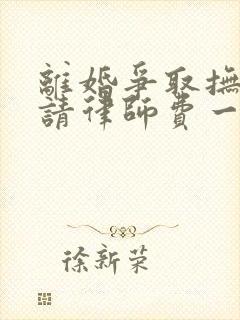 離婚爭取撫
請律師費一
徐新荣